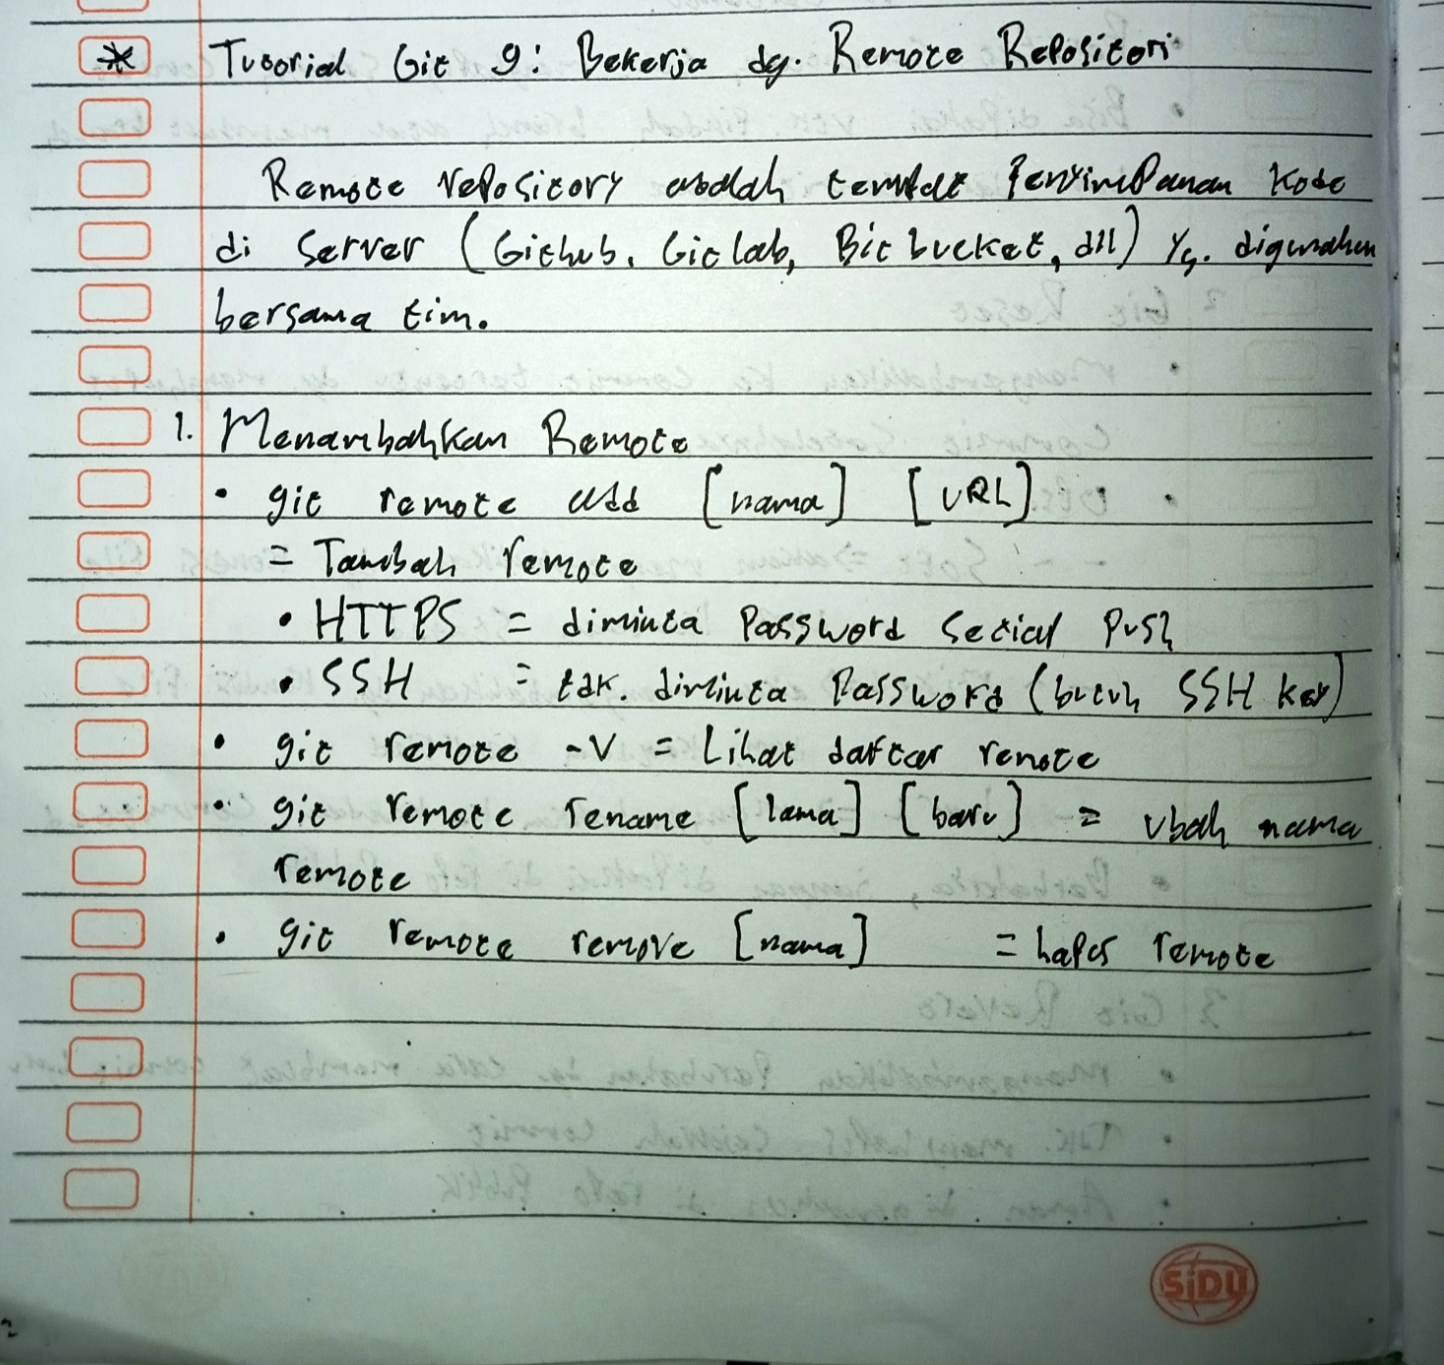 * Tutorial Git 9: Bekerja dg. Remote Repositori
Remote repository adalah tempat penyimpanan kode
di server (Github, Gitlab, Bitbucket, dll) yg. digunakan
bersama tim.
1. Menambahkan Remote
• git remote add [nama] [URL]
= Tambah remote
• HTTPS = diminta password setiap push
• SSH = tdk. diminta password (butuh SSH key)
• git remote -v = Lihat daftar remote
• git remote rename [lama] [baru] = ubah nama
remote
• git remote remove [nama] = hapus remote
SiDU